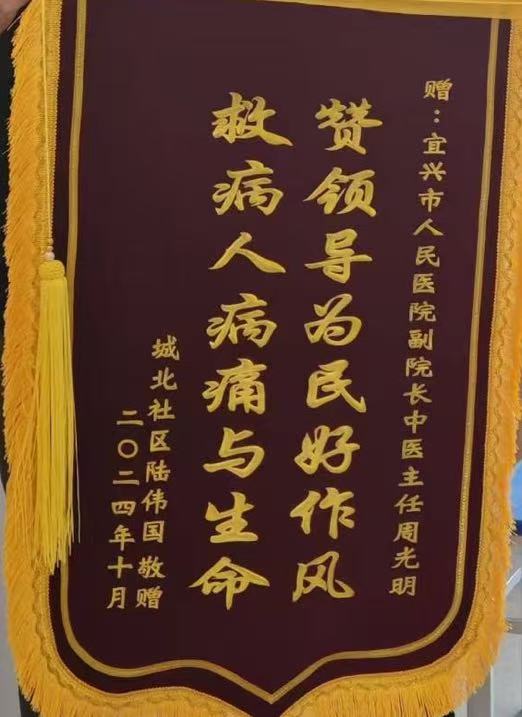 赠：宜兴市人民医院副院长中医主任周光明
赞领导为民好作风
救病人病痛与生命
城北社区陆伟国敬赠
二〇二四年十月